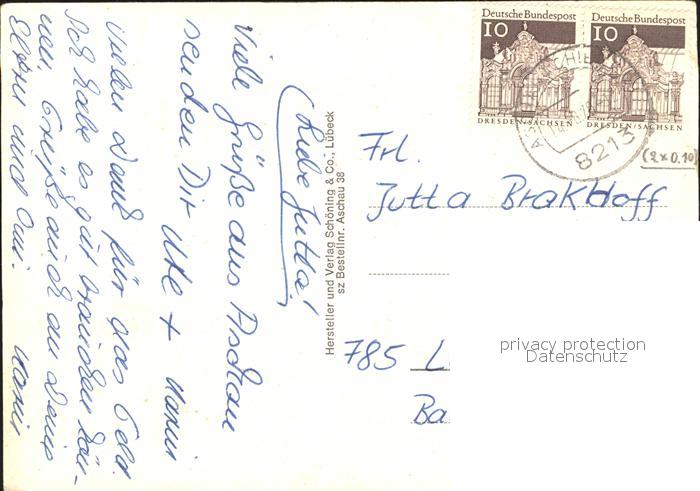 (Liebe Jutta!
Viele Grüße aus Aschau
senden Dir Ute + Mami
Vielen Dank für das Geld.
Ich habe es gut brauchen kön-
nen. Grüße auch an Deine
Eltern und Omi. Mami
Hersteller und Verlag Schöning & Co., Lübeck
sz Bestellnr. Aschau 38
Deutsche Bundespost Deutsche Bundespost
10 10
DRESDEN/SACHSEN DRESDEN/SACHSEN
8213
(2x0.10)
Frl.
Jutta Brakhoff
785 L
Ba
privacy protection
Datenschutz